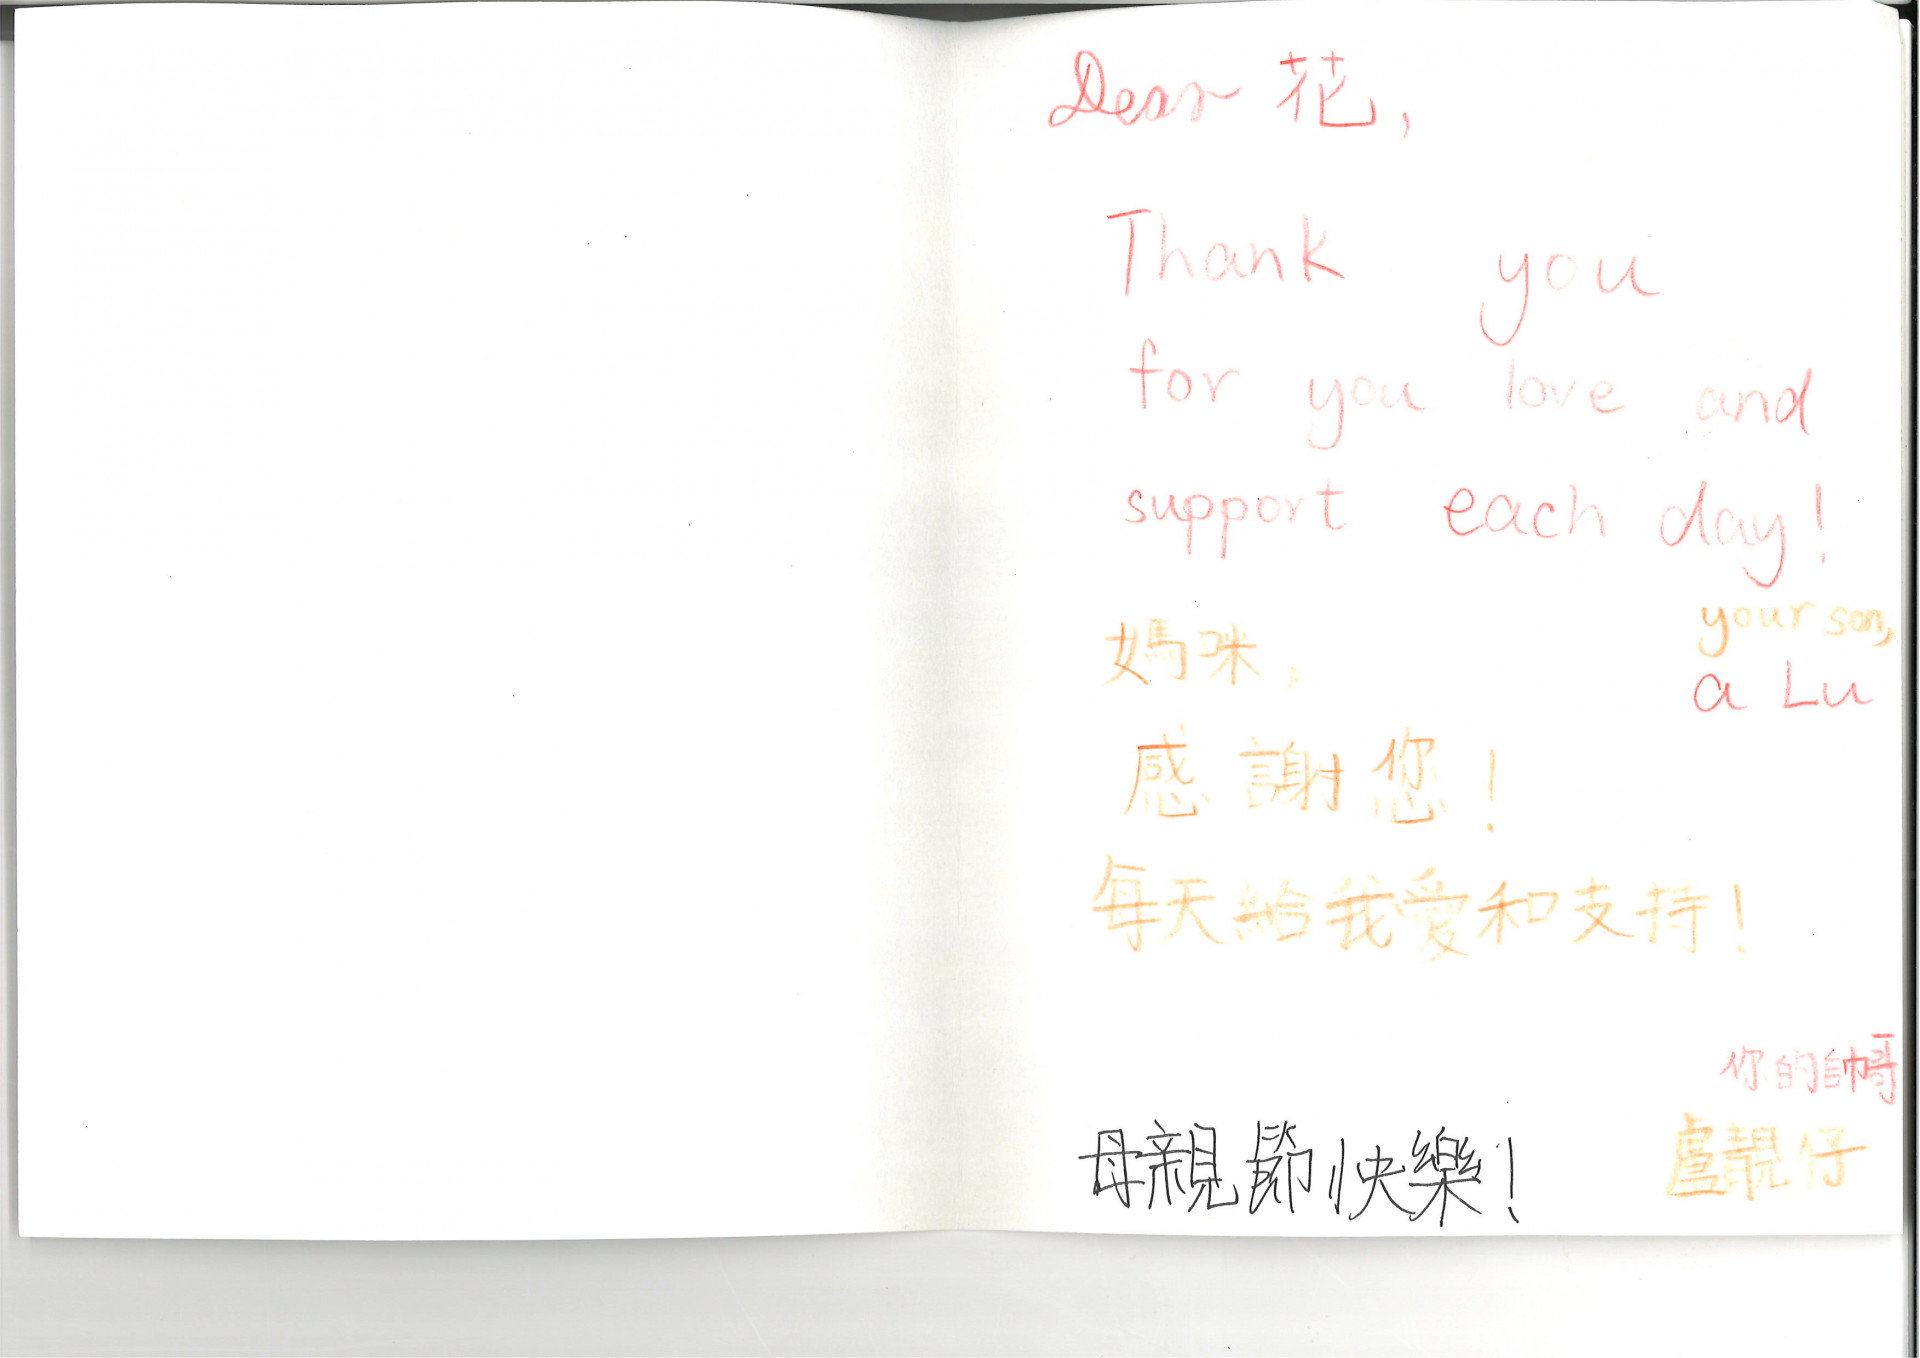 Dear 花,
Thank you
for you love and
support each day!
your son,
a Lu
媽咪,
感謝您!
每天給我愛和支持!
你的帥哥
盧靚仔
母親節快樂!